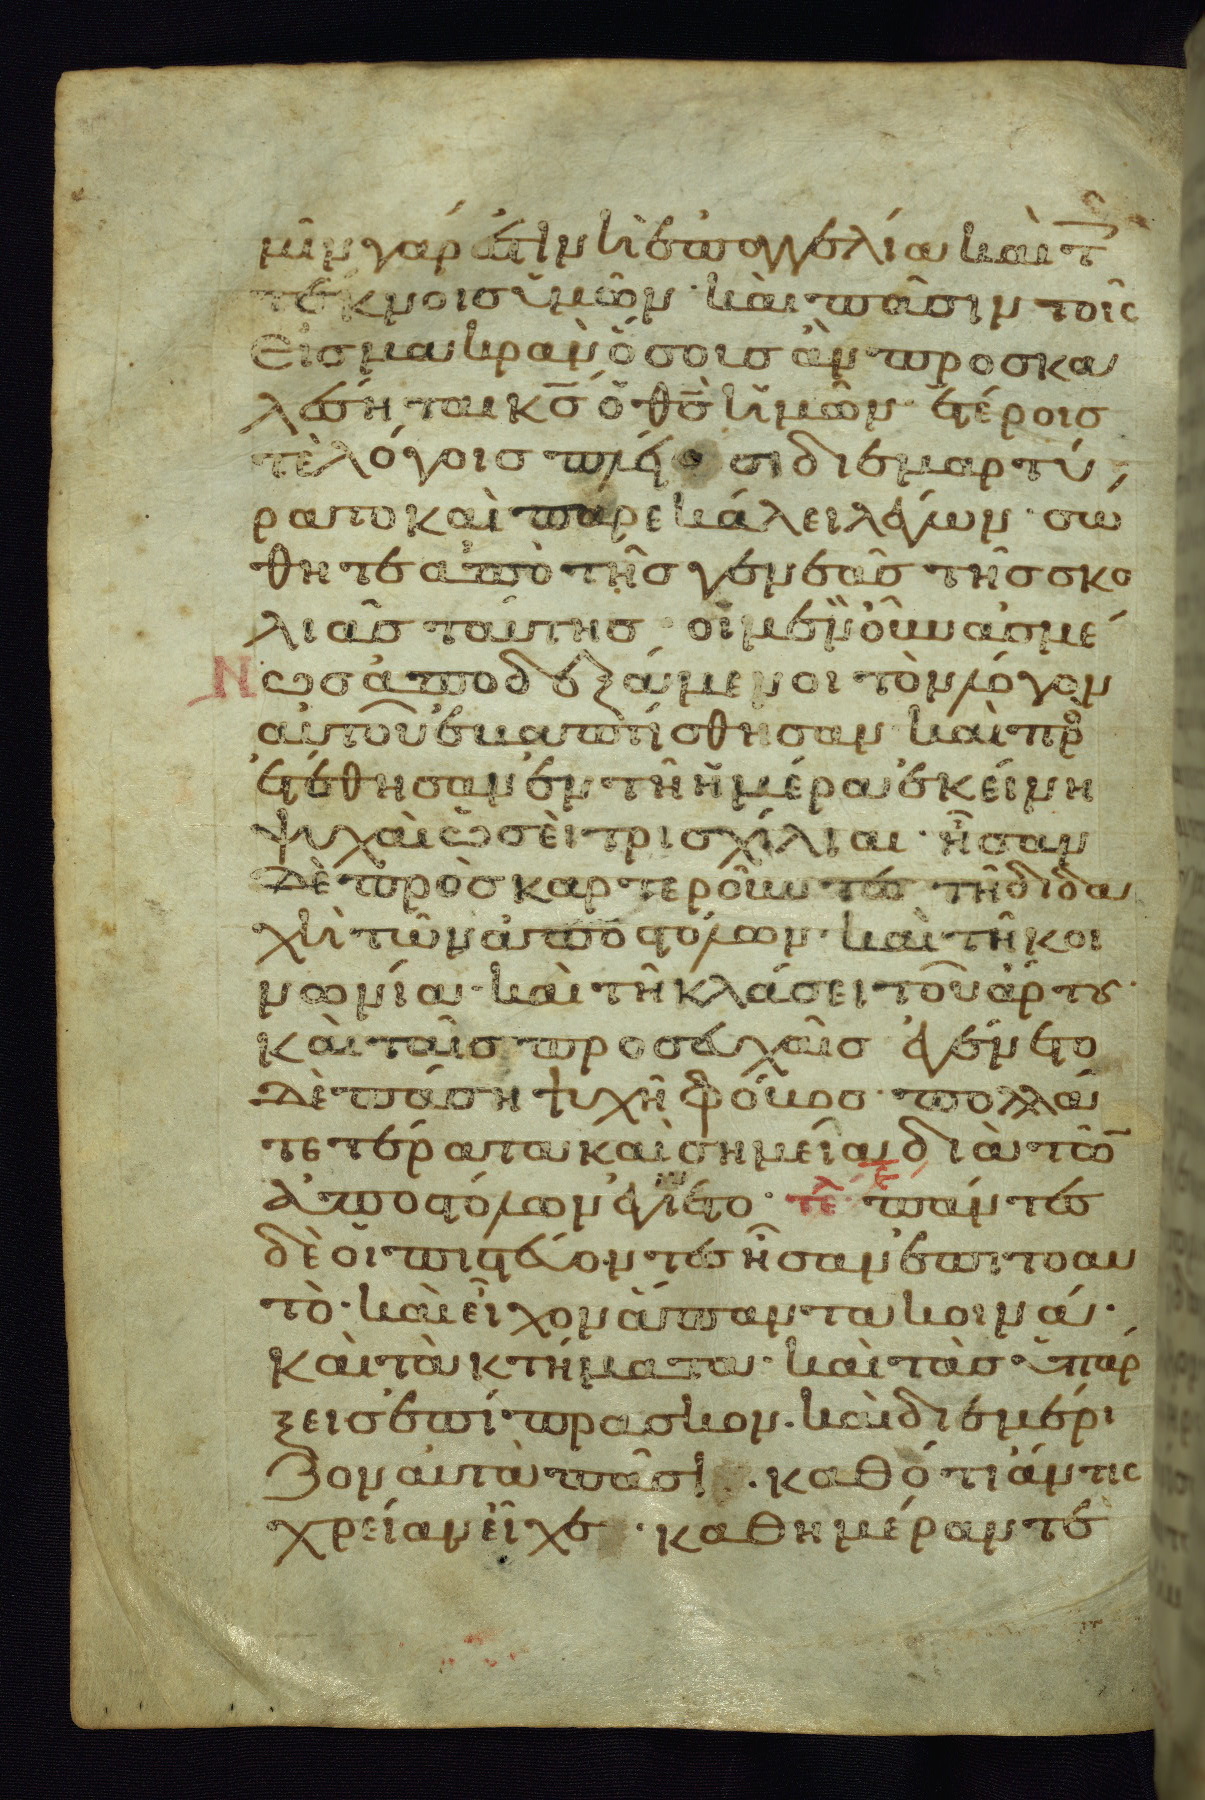 μῖν γάρ ἐστιν ἡ ἐπαγγελία καὶ τ
τέκνοις ὑμῶν· καὶ πᾶσιν τοῖς
εἰς μακρὰν ὅσους ἂν προσκα
λέσηται κς ὁ θς ἡμῶν· ἑτέροις
τὲ λόγοις πλείοσι διεμαρτύ
ρατο καὶ παρεκάλει λέγων· σώ
θητε ἀπὸ τῆς γενεᾶς τῆς σκο
λιᾶς ταύτης· οἱ μὲν οὖν ἀσμέ
Ν ως ἀποδεξάμενοι τὸν λόγον
αὐτοῦ ἐβαπτίσθησαν καὶ προ
σετέθησαν ἐν τῇ ἡμέρα ἐκείνη
ψυχαὶ ὡσεὶ τρισχίλιαι· ἦσαν
δὲ πρὸσκαρτεροῦντες τῇ διδα
χῇ τῶν ἀποστόλων· καὶ τῇ κοι
νωνία· καὶ τῇ κλάσει τοῦ ἄρτου·
καὶ ταῖς προσευχαῖς ἐγένετο
δὲ πάση ψυχῇ φόβος· πολλά
τε τέρατα καὶ σημεῖα διὰ τῶ
ἀποστόλων ἐγίνετο· τε πάντες
δὲ οἱ πιστεύοντες ἦσαν ἐπιτοαυ
τὸ· καὶ εἶχον ἅπαντα κοινά·
καὶ τὰ κτήματα· καὶ τὰς ὑπάρ
ξεις ἐπίπρασκον· καὶ διεμέρι
ζον αὐτὰ πᾶσι· καθότι ἄν τις
χρείαν εἶχε· καθημέραν τὲ